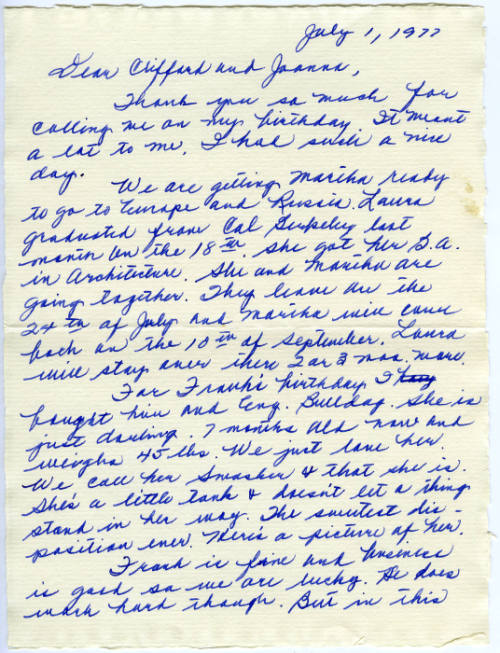 July 1, 1977
Dear Clifford and Joanna,
Thank you so much for
calling me on my birthday. It meant
a lot to me. I had such a nice
day.
We are getting Martha ready
to go to Europe and Russia. Laura
graduated from Cal Berkeley last
month on the 18th. She got her B.A.
in Architecture. She and Martha are
going together. They leave on the
24th of July and Martha will come
back on the 10th of September. Laura
will stay over there 2 or 3 mos. more.
For Frank's birthday I
bought him and Eng. Bulldog. She is
just darling. 7 months old now and
weighs 45 lbs. We just love her.
We call her Smasher & that she is.
She's a little tank & doesn't let a thing
stand in her way. The sweetest dis-
position ever. Here's a picture of her.
Frank is fine and business
is good so we are lucky. He does
work hard though. But in this